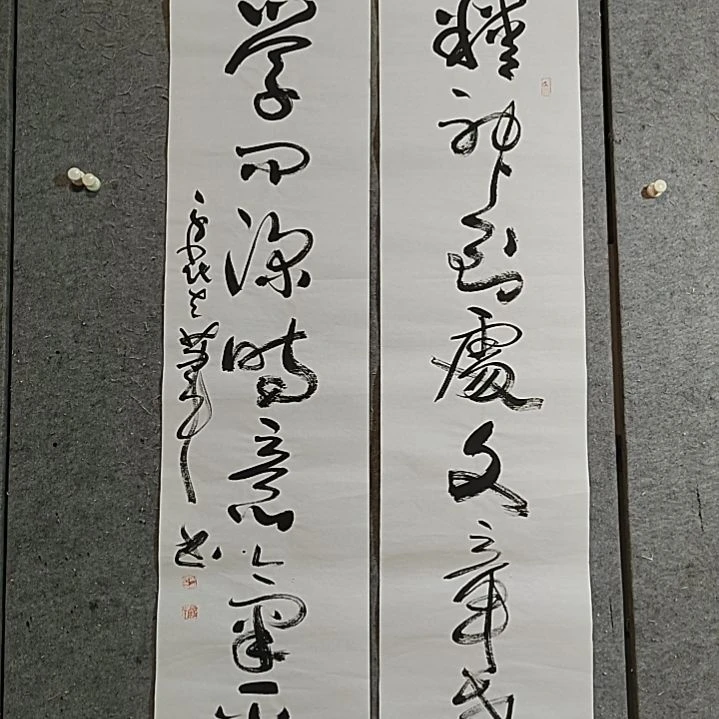 精神到處文章老
學問深時意氣平
書